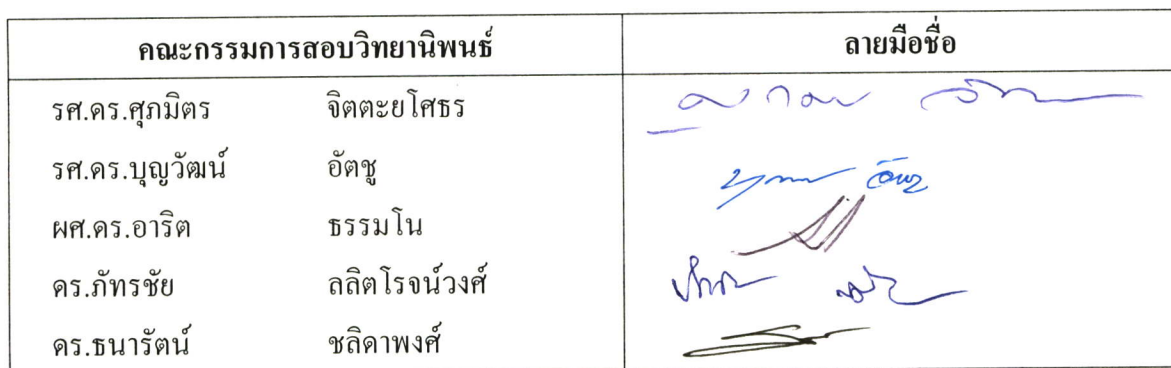 คณะกรรมการสอบวิทยานิพนธ์ ลายมือชื่อ
รศ.ดร.ศุภมิตร จิตตะยโศธร
รศ.ดร.บุญวัฒน์ อัตชู
ผศ.ดร.อาริต ธรรมโน
ดร.ภัทรชัย ลลิตโรจน์วงศ์
ดร.ธนารัตน์ ชลิดาพงศ์